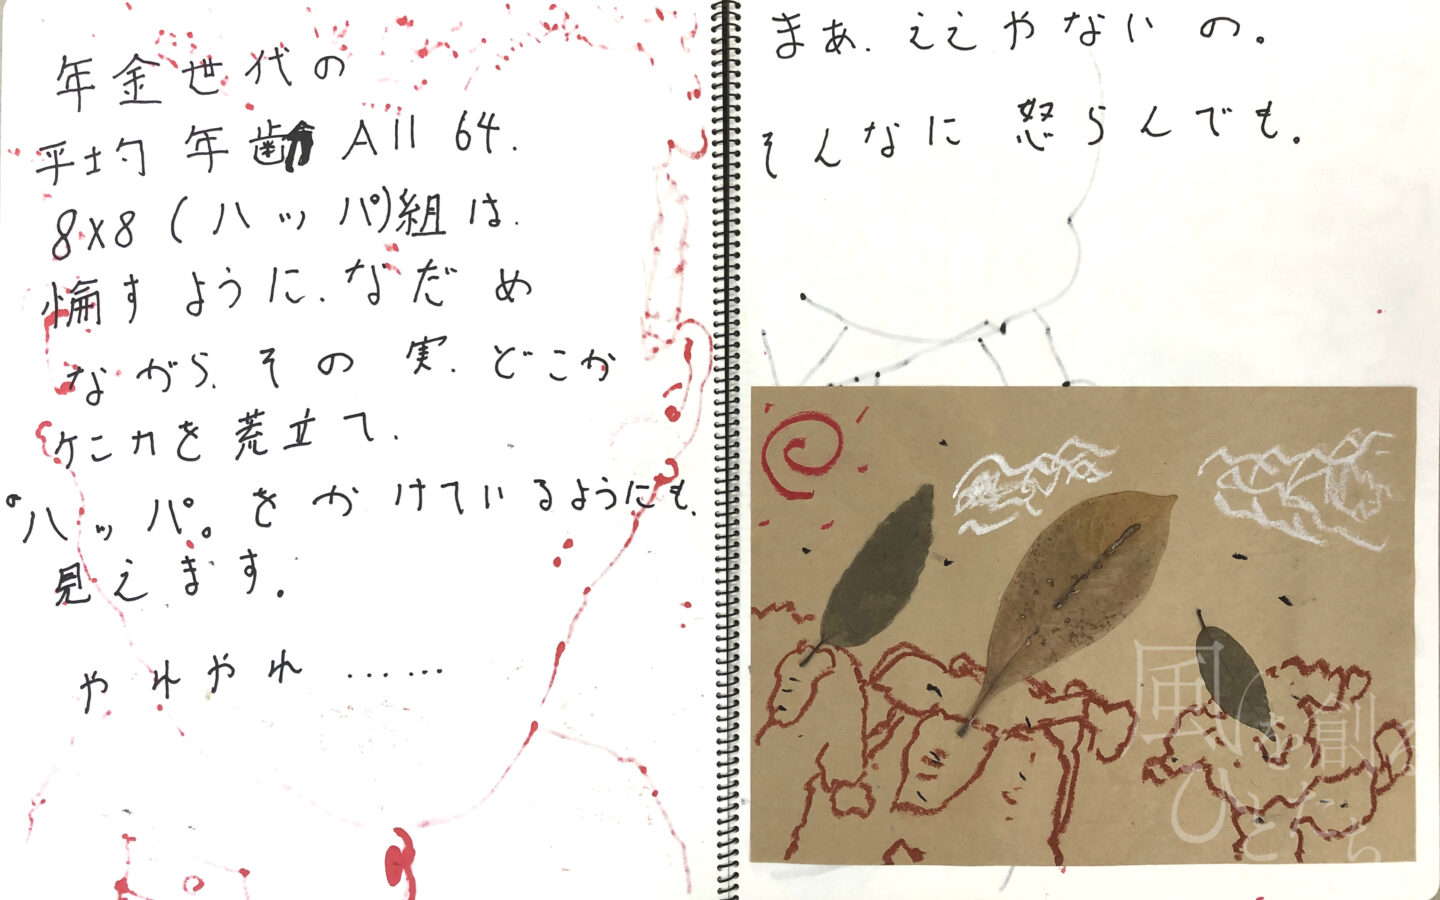 年金世代の
平均年歯 All 64.
8x8 (ハッパ)組は.
惀すように、なだめ
ながら、その実、どこか
ケンカを荒立て、
"ハッパ。をかけているようにも、
見えます。
やれやれ……
まぁ、ええやないの。
そんなに怒らんでも。
風を創る
ひとたち